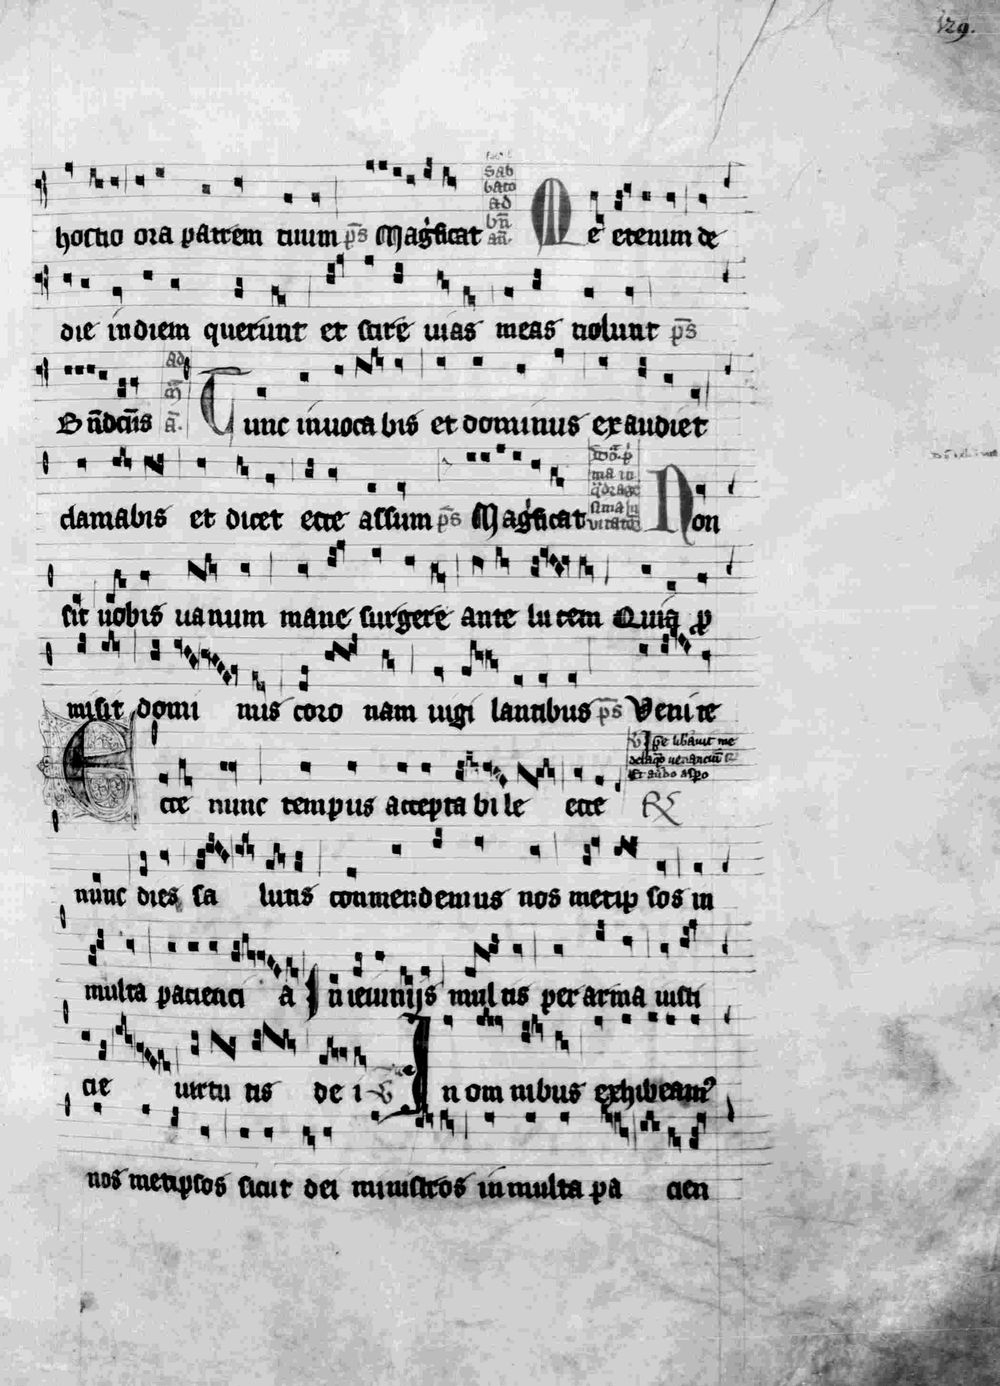 129.
hostio ora patrem tuum p̄s Magn̄ficat Sab bato ad bn̄ an̄. Me etenim de
die in diem querunt et scire uias meas uolunt p̄s
Bn̄dcn̄s ad m̄ a. Tunc inuoca bis et dominus exaudiet
clamabis et dicet ecce assum p̄s Magn̄ficat Non
sit uobis uanum mane surgere ante lucem Quia ꝓ
misit domi nus coro nam uigi lantibus p̄s Venite
Ecce nunc tempus accepta bi le ecce
nunc dies sa lutis conmendemus nos metip sos in
multa pacienci a In ieiunijs mul tis per arma iusti
cie uirtu tis de i V In om nibus exhibeam⁹
nos metipsos sicut dei ministros in multa pa cien